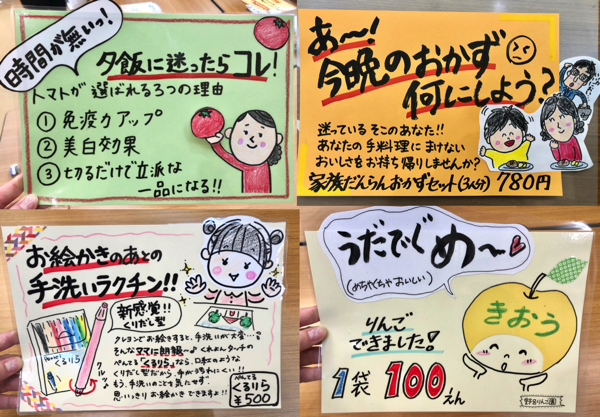 時間が無いっ!
夕飯に迷ったらコレ!
トマトが選ばれる3つの理由
① 免疫力アップ
② 美白効果
③ 切るだけで立派な
一品になる!!
あ〜!
今晩のおかず
何にしよう?
迷っているそこのあなた!!
あなたの手料理にまけない
おいしさをお持ち帰りしませんか?
家族だんらんおかずセット(3人分) 780円
お絵かきのあとの
手洗いラクチン!!
新感覚!!
くりだし型
クレヨンでお絵きすると、手洗いが大変…
そんなママに朗報〜♪ くれよんタッチの
ぺんてる「くるりら」なら、口紅のような
くりだし型だから、手がよごれにくい!!
もう、手洗いのことも気にせず
思いっきりお絵かきできますネ!!
クルッ
ぺんてる
くるりら
¥500
うだでぐ
め〜
(めちゃくちゃおいしい)
りんご
できました!
1袋 100えん
きおう